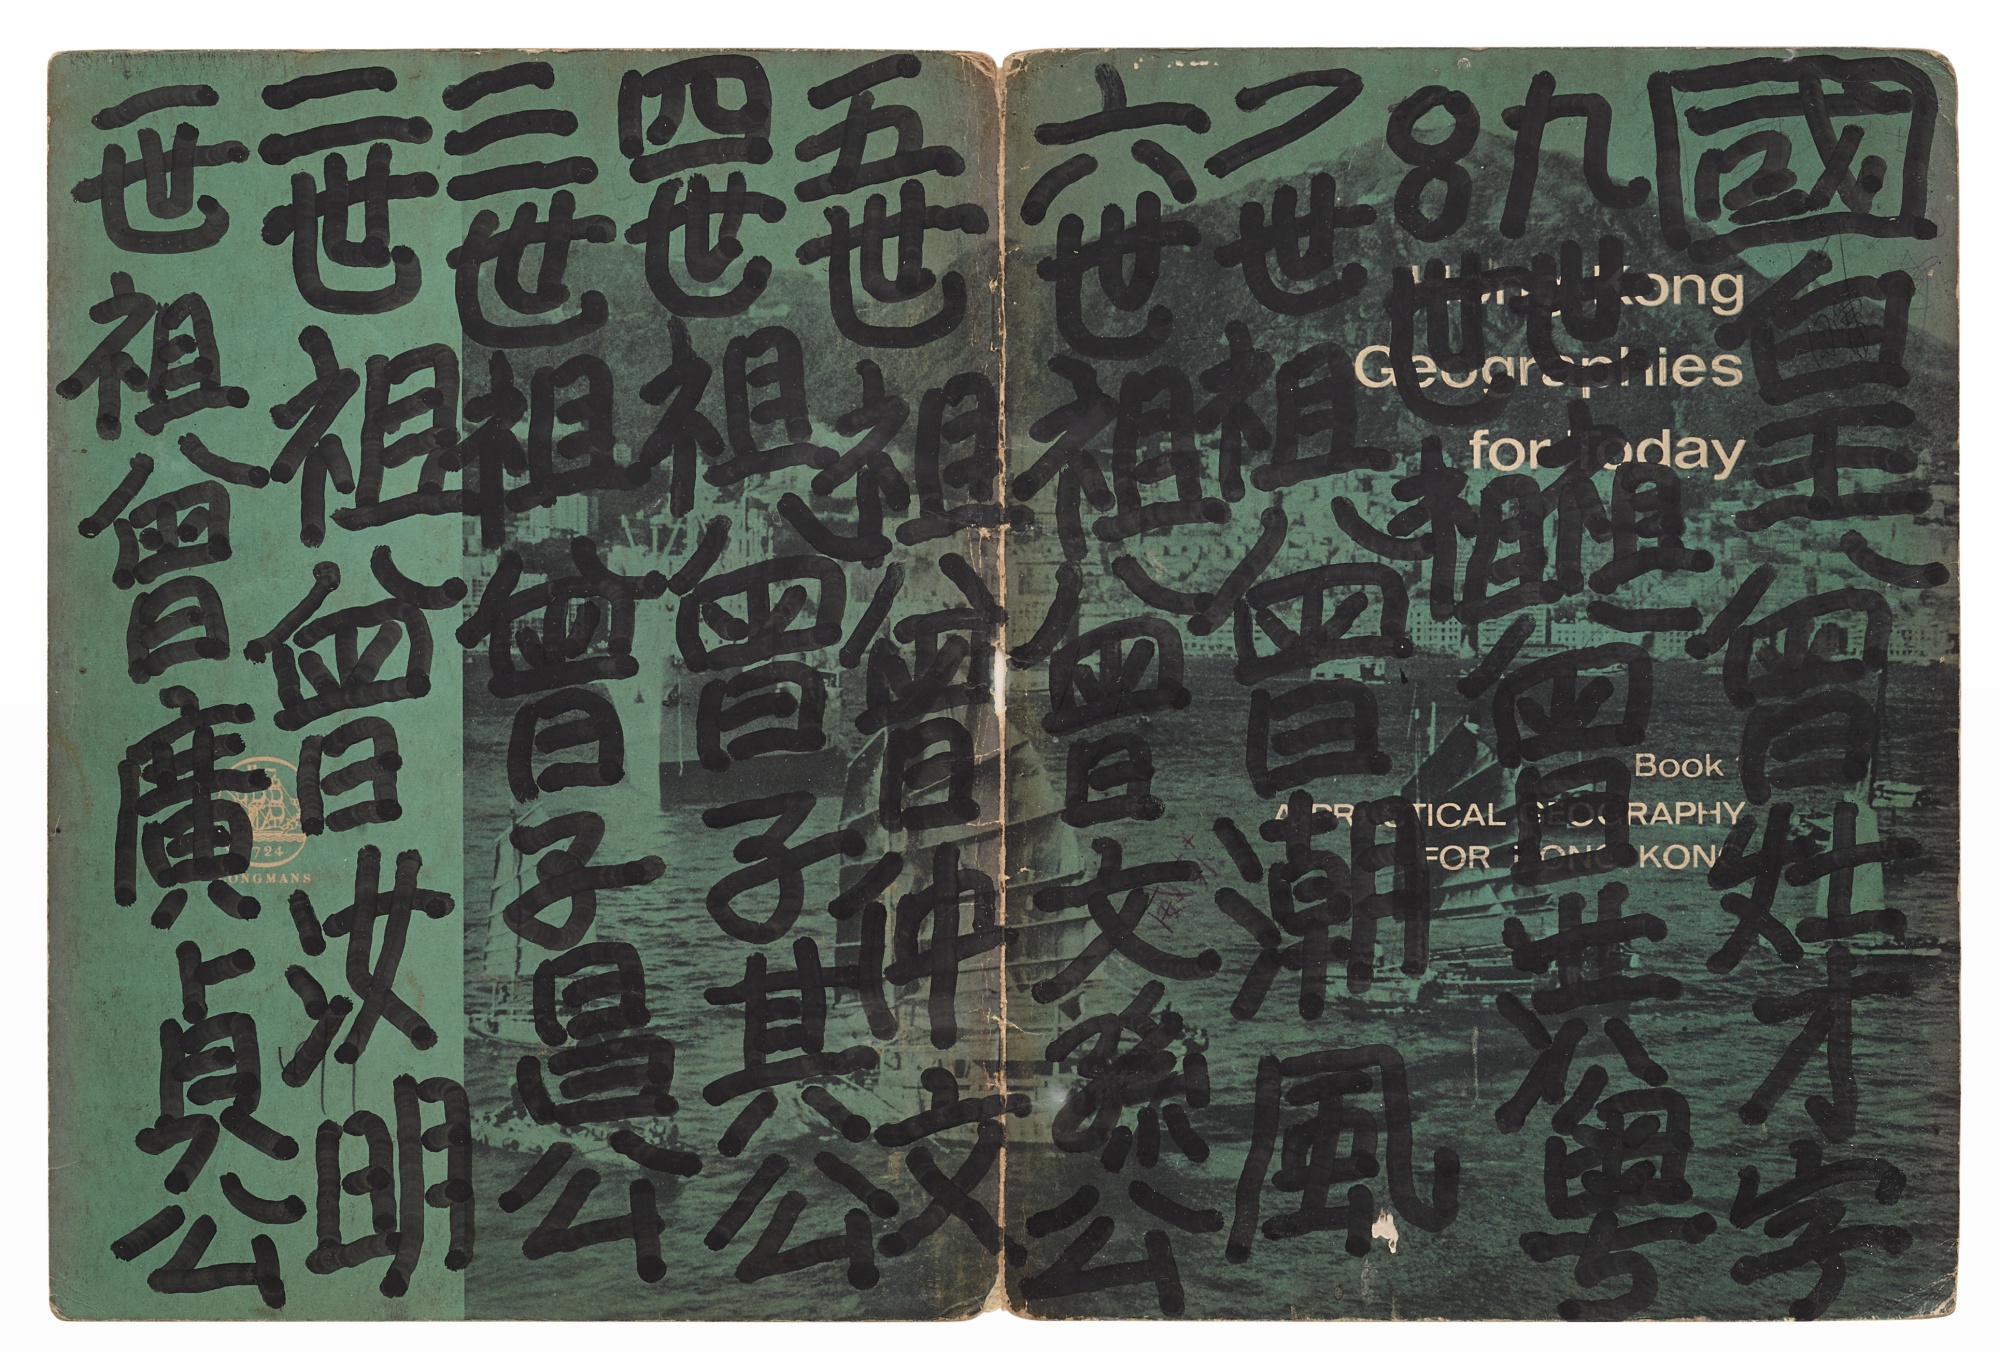 一世祖曾廣貞公
二世祖曾汝明
三世祖曾子昌公
四世祖曾子其公
五世祖曾仲文
六世祖曾文孫公
7世祖曾潮風
8世祖
九世祖
曾共
國皇曾灶才字
Hong Kong
Geographies
for Today
Book
A PRACTICAL GEOGRAPHY
FOR HONG KONG
1724
LONGMANS